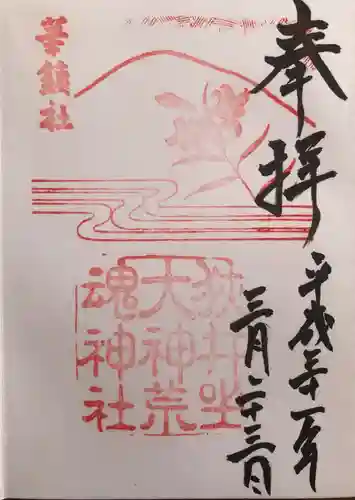 奉拝
平成三十一年
三月二十三日
華鎮社
狭井坐
大神荒
魂神社